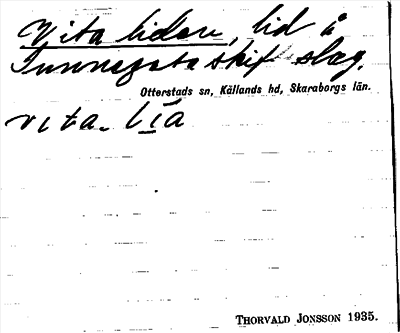 Vita liden, lid å
Tunnegata skifslag.
Otterstads sn, Kållands hd, Skaraborgs län.
vita- lia
THORVALD JONSSON 1935.